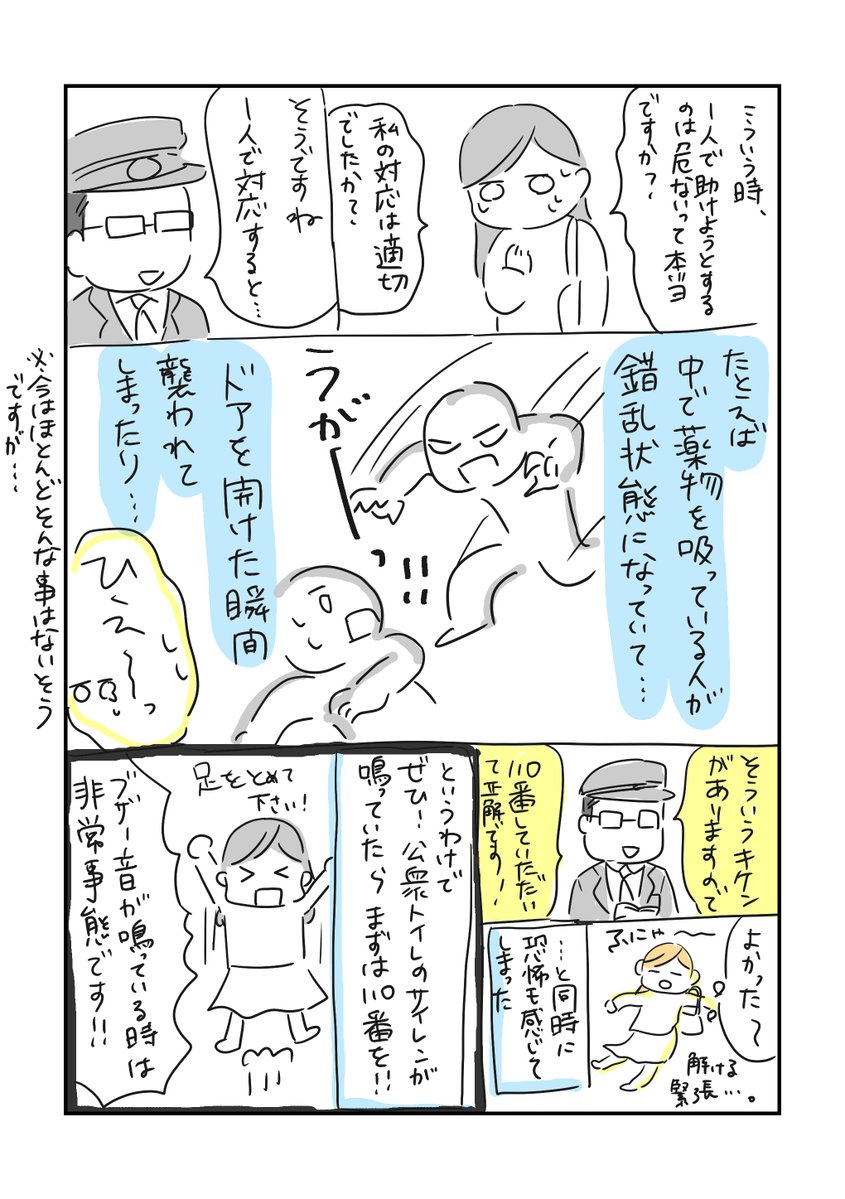 こういう時、
1人で助けようとする
のは危ないって本当
ですか?
私の対応は適切
でしたか?
そうですね
1人で対応すると…
たとえば
中で薬物を吸っている人が
錯乱状態になっていて…
うがーっ!!
ドアを開けた瞬間
襲われて
しまったり…
ひえ〜っ
※今はほとんどそんな事はないそう
ですが…
そういうキケン
がありますので
110番していただい
て正解です!
よかった〜
ふにゃ〜
解ける
緊張…。
…と同時に
恐怖も感じて
しまった
というわけで
ぜひ!公衆トイレのサイレンが
鳴っていたらまずは110番を!!
足をとめて
下さい!
ブザー音が鳴っている時は
非常事態です!!